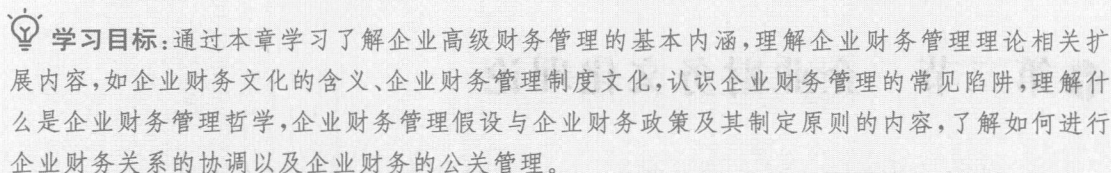 学习目标:通过本章学习了解企业高级财务管理的基本内涵,理解企业财务管理理论相关扩
展内容,如企业财务文化的含义、企业财务管理制度文化,认识企业财务管理的常见陷阱,理解什
么是企业财务管理哲学,企业财务管理假设与企业财务政策及其制定原则的内容,了解如何进行
企业财务关系的协调以及企业财务的公关管理。